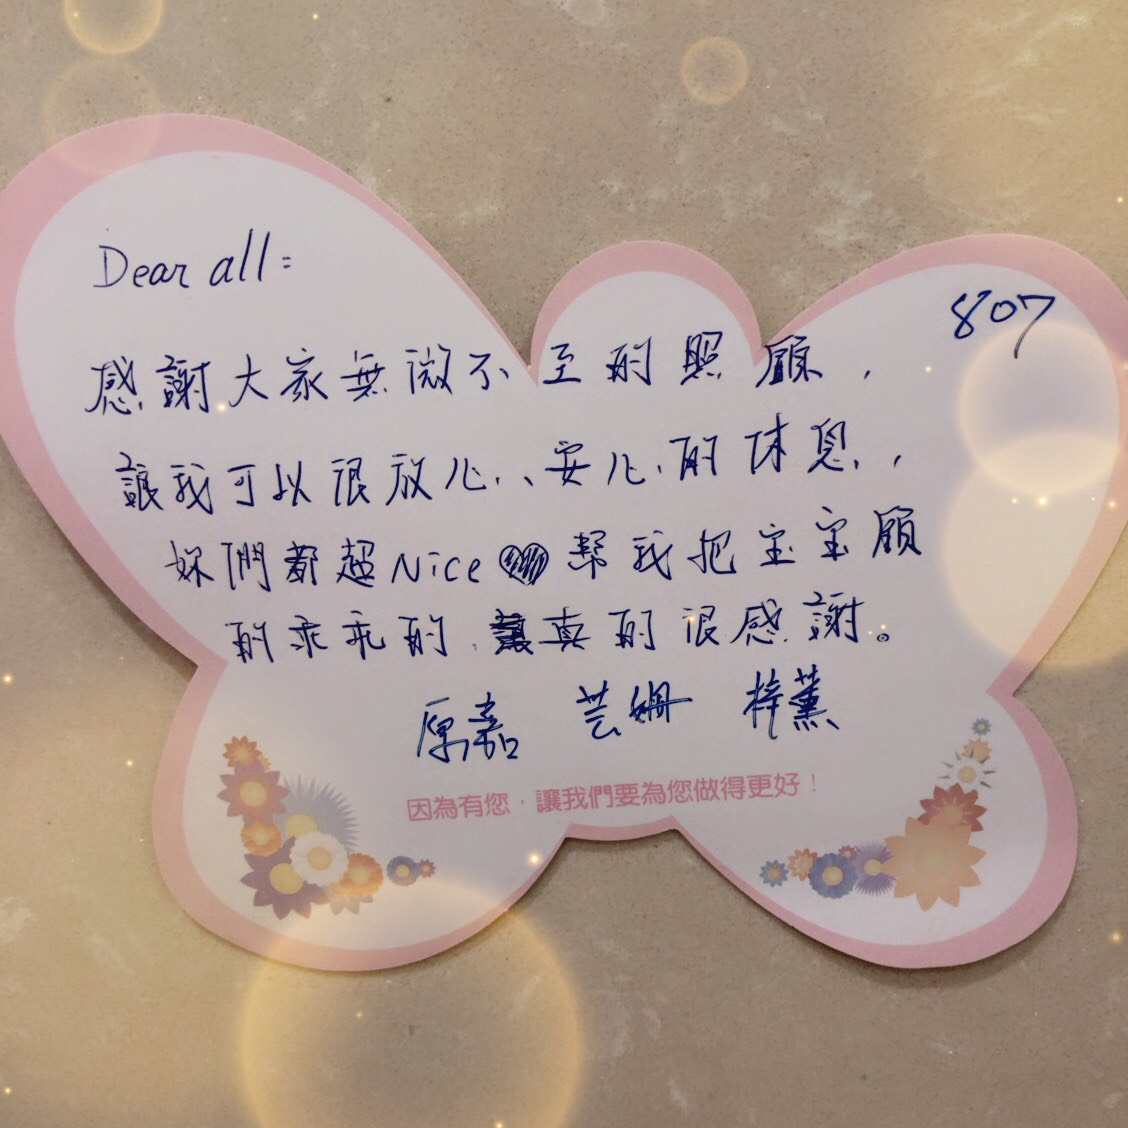 Dear all:
807
感謝大家無微不至的照顧，
讓我可以很放心、安心的休息，
妳們都超Nice 幫我把寶寶顧
的乖乖的，真的很感謝。
原嘉 芸姍 梓薰
因為有您，讓我們要為您做得更好！